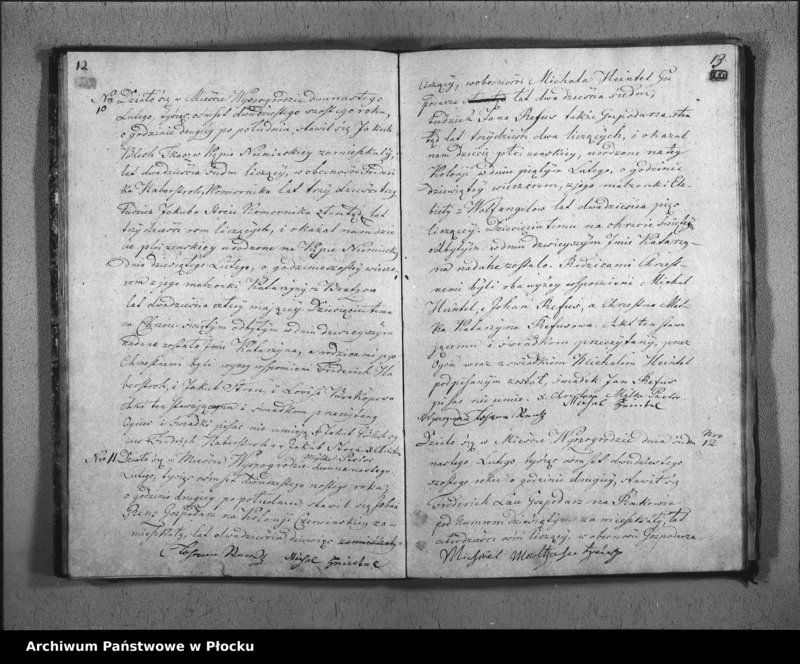 12
No 10 Działo się w Mieście Wyszogrodzie dwunastego
Lutego, tysiąc osmset dwudziestego szostego roku,
o godzinie drugiey po południu, stawił się Jakub
Bloch na Kępie Niemieckiey zamieszkały,
lat dwadzieścia siedm liczący, w obecności
Haberstroh, Komornika lat trzydzieści trzy
tudzież Jakuba Komornika ztamtąd, lat
trzydzieści osm liczących, i okazał nam dziecie
płci żenskiey urodzone na Kępie Niemieckiey
dnia dziesiątego Lutego, o godzinie szostey wieczo
rem z jego małżonki Katarzyny z
lat dwadzieścia cztery maiącey. Dziecięciu temu
na Chrzcie Świętym odbytym w dniu dzisieyszym
nadane zostało Imie Katarzyna, a rodzicami jego
Chrzestnemi byli wyżey wspomnieni Friderich Ha
berstroh, i Jakub i Lovisa
Akt ten stawaiącemu i świadkom przeczytany
Oyciec i świadki pisać nie umieią + Jakub Bloch oy
ciec + Fridrich Haberstroh + Jakub
No 11 Działo się w Mieście Wyszogrodzie dwunastego
Lutego, tysiąc osmset dwudziestego szostego roku,
o godzinie drugiey po południu, stawił się Johan
Gospodarz na Kolonji Czerwinskiey za-
mieszkały, lat dwadzieścia dziewięć
13
liczący, w obecności Michała Heintel Go
spodarza lat dwadzieścia siedm,
tudzież Jana Refus także Gospodarza ztam
tąd lat trzydzieści dwa liczących, i okazał
nam dziecię płci żenskiey, urodzone na tey
Kolonji w dniu piątym Lutego, o godzinie
dziewiątey wieczorem, z jego małżonki Elż
biety z Wolfangelow lat dwadzieścia pięć
liczącey. Dziecięciu temu na chrzcie świętym
odbytym w dniu dzisieyszym Imie Katarzy-
na nadane zostało. Rodzicami Chrzest
nemi byli obecnie wspomnieni Michał
Heintel, i Johan Refus, a Chrzestna Mat
ka Katarzyna Refusowa. Akt ten stawa
jącemu i świadkom przeczytany, przez
Oyca wraz z świadkiem Michałem Heintel
podpisanym został, świadek Jan Refus
pisać nie umie.
Nro 12
Działo się w Mieście Wyszogrodzie dnia siedm
nastego Lutego tysiąc osmset dwudziestego
szostego roku o godzinie drugiey, stawił się
Friderich Lau Gospodarz na Rakowie
pod Numerem dziewiątym zamieszkały, lat
czterdzieści osm liczący, w obecności Gospodarza
Archiwum Państwowe w Płocku